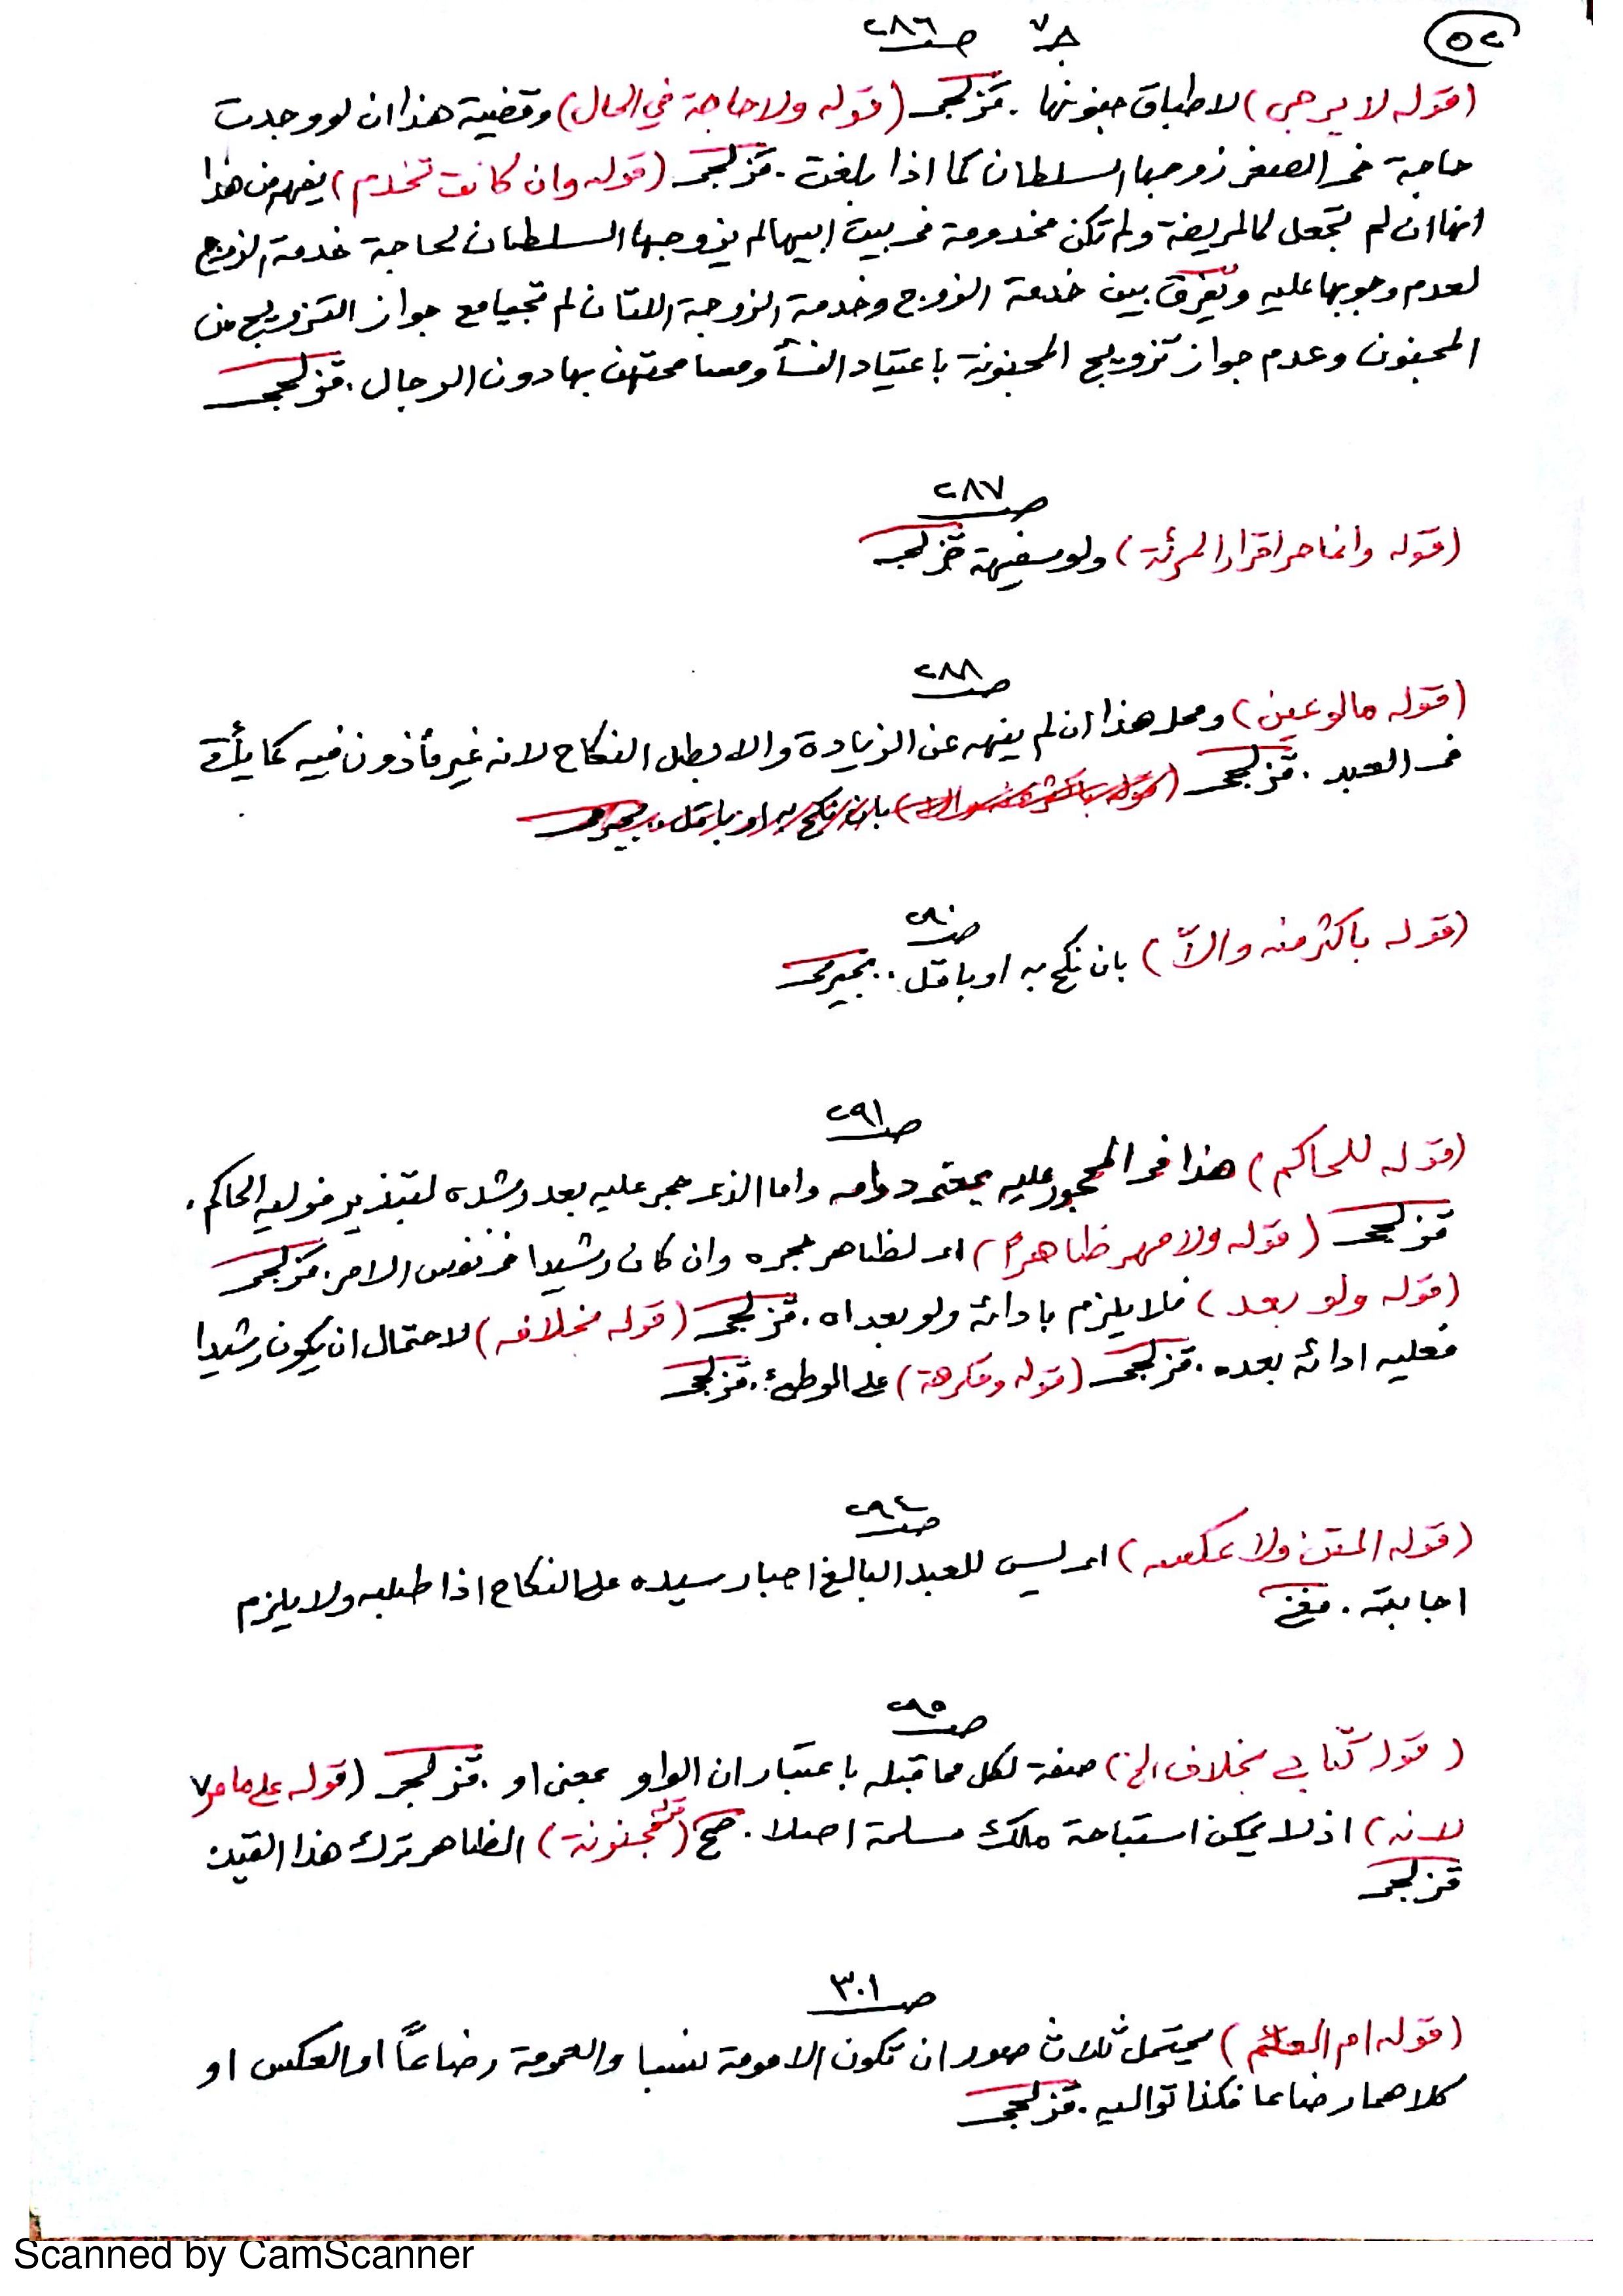 ٥٢
جـ٧ صـ٢٨٦
(قوله لا يرجى) لاطباق جنونها. قزلجى (قوله ولا حاجة في الحال) وقضية هذا ان لو وجدت
حاجة فى الصغر زوجها السلطان كما اذا بلغت. قزلجى (قوله وان كانت تخدم) يفهم من هذا
انها ان لم تجعل كالمريضة ولم تكن مخدومة فى بيت ابيها لم يزوجها السلطان لحاجة خدمة الزوج
لعدم وجوبها عليه ويفرق بين خدمة الزوج وخدمة الزوجة اللتان لم تجبا مع جواز التزويج من
المجنون وعدم جواز تزويج المجنونة باعتياد النسأ بها دون الرجال. قزلجى
صـ٢٨٧
(قوله وانما مر اقرار المرئة) ولو سفيهة قزلجى
صـ٢٨٨
(قوله ما لو عين) ومحل هذا ان لم ينهه عن الزيادة والا بطل النكاح لانه غير مأذون فيه كما يأتى
فى العبد. قزلجى (قوله باكثر منه والا) بان نكح به او باقل.
صـ٢٩٠
(قوله باكثر منه والاّ) بان نكح به او باقل.. بجيرمى
صـ٢٩١
(قوله للحاكم) هذا فى المحجور عليه واما الذى حجر عليه بعد رشده لتبذير فوليه الحاكم.
قزلجى (قوله ولا مهر ظاهراً) اى لظاهر حجره وان كان رشيدا فى نفس الامر. قزلجى
(قوله ولو بعد) فلا يلزم بادائه ولو بعد اه. قزلجى (قوله بخلافه) لاحتمال ان يكون رشيدا
فعليه ادائه بعده. قزلجى (قوله ومكرهة) على الوطئ. قزلجى
صـ٢٩٤
(قوله المتن ولا عكسه) اى ليس للعبد البالغ اجبار سيده على النكاح اذا طلبه ولا يلزم
اجابته. مغنى
صـ٢٩٥
(قوله كتابى بخلاف الخ) صفة لكل مما قبله باعتبار ان الواو بمعنى او. قزلجى (قوله على ما مر
لانه) اذ لا يمكن استباحة ملك مسلمة اصلا. صح (قوله مجنونة) الظاهر ترك هذا القيد
قزلجى
صـ٣٠١
(قوله ام العم) يحتمل ثلاث صور ان تكون الامومة نسبا والعمومة رضاعاً او العكس او
كلاهما رضاعا فكذا تواليه. قزلجى
Scanned by CamScanner